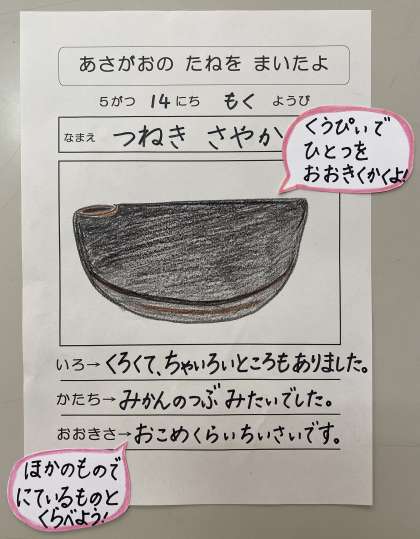 あさがおの たねを まいたよ
5がつ 14にち もく ようび
なまえ つねき さやか
くうぴぃで
ひとつを
おおきくかくよ!
いろ→くろくて、ちゃいろいところもありました。
かたち→みかんのつぶ みたいでした。
おおきさ→おこめくらいちいさいです。
ほかのもので
にているものと
くらべよう!